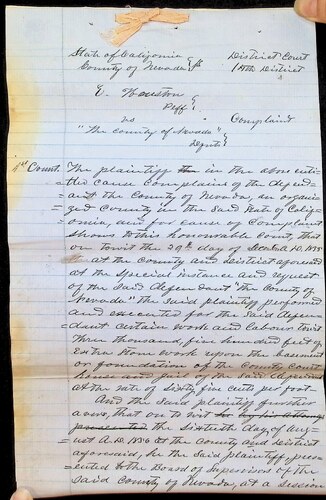 State of California } District Court
County of Nevada } ss 14th District
E. Houston
Plff }
vs } Complaint
"The County of Nevada" }
Defendt }
1st Count. The plaintiff in the above enti-
tled cause complains of the defen-
dant the County of Nevada, an organi-
zed county in the said State of Calif-
ornia, and for cause of complaint
shows to this honorable Court, that
on towit the 29th day of A.D. 1855
at the county and district aforesaid
at the Special instance and request
of the Said defendant "the County of
Nevada" the said plaintiff performed
and executed for the said defen-
dant certain work and labour towit
three thousand, five hundred feet of
Extra Stone work upon the basement
or foundation of the county court
house and jail of the said
at the rate of Sixty five cents per foot.
And the said plaintiff further
avers, that on to wit
the Sixteenth day of Aug-
ust A.D. 1856 at the County and district
aforesaid, he the Said plaintiff, pres-
ented to the Board of Supervisors of the
said County of Nevada, at a Session